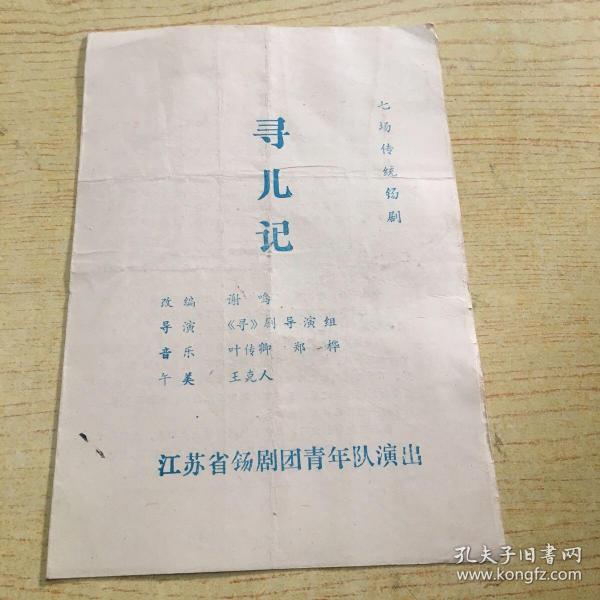 七场传统锡剧
寻儿记
改编 谢鸣
导演 《寻》剧导演组
音乐 叶传卿 郑桦
午美 王克人
江苏省锡剧团青年队演出
孔夫子旧书网
www.kongfz.com